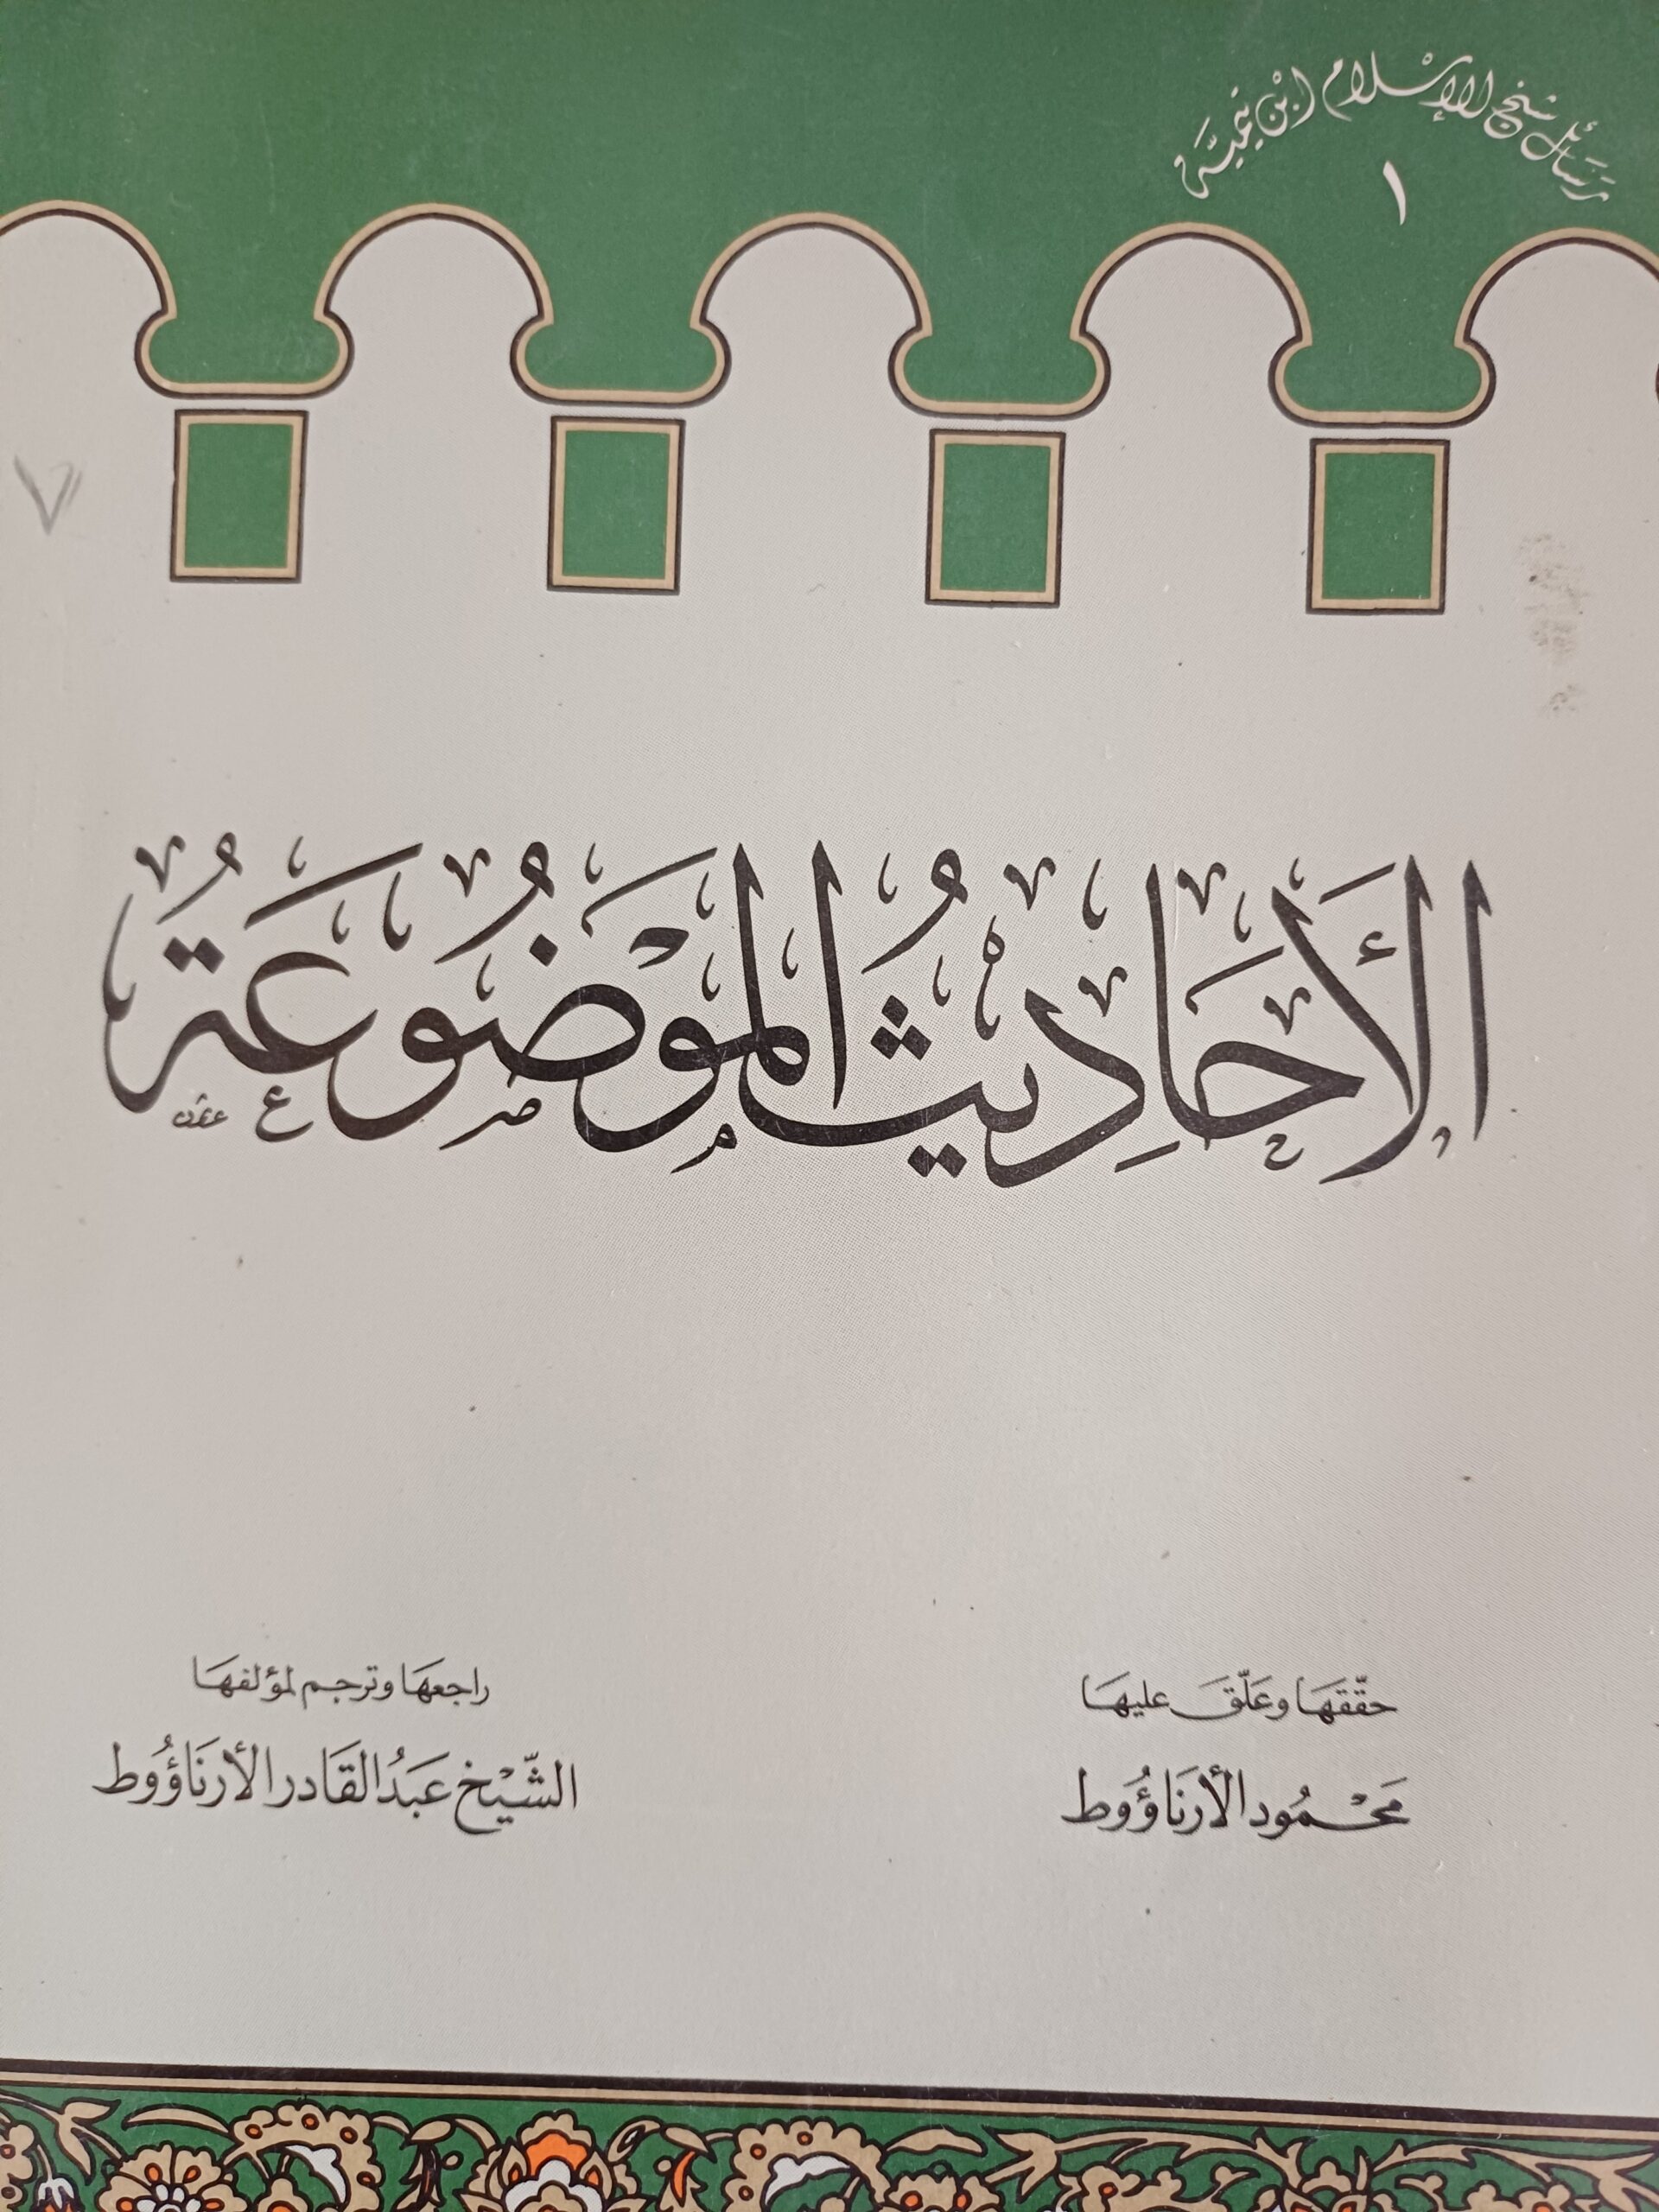 رسائل شيخ الإسلام ابن تيمية
١
الأَحَادِيثُ المَوْضُوعَةُ
حقّقهَا وعَلّقَ عليهَا
مَحْمُود الأرنَاؤُوط
راجعهَا وترجم لمؤلفهَا
الشّيْخ عَبدُ القَادر الأرنَاؤُوط
٧